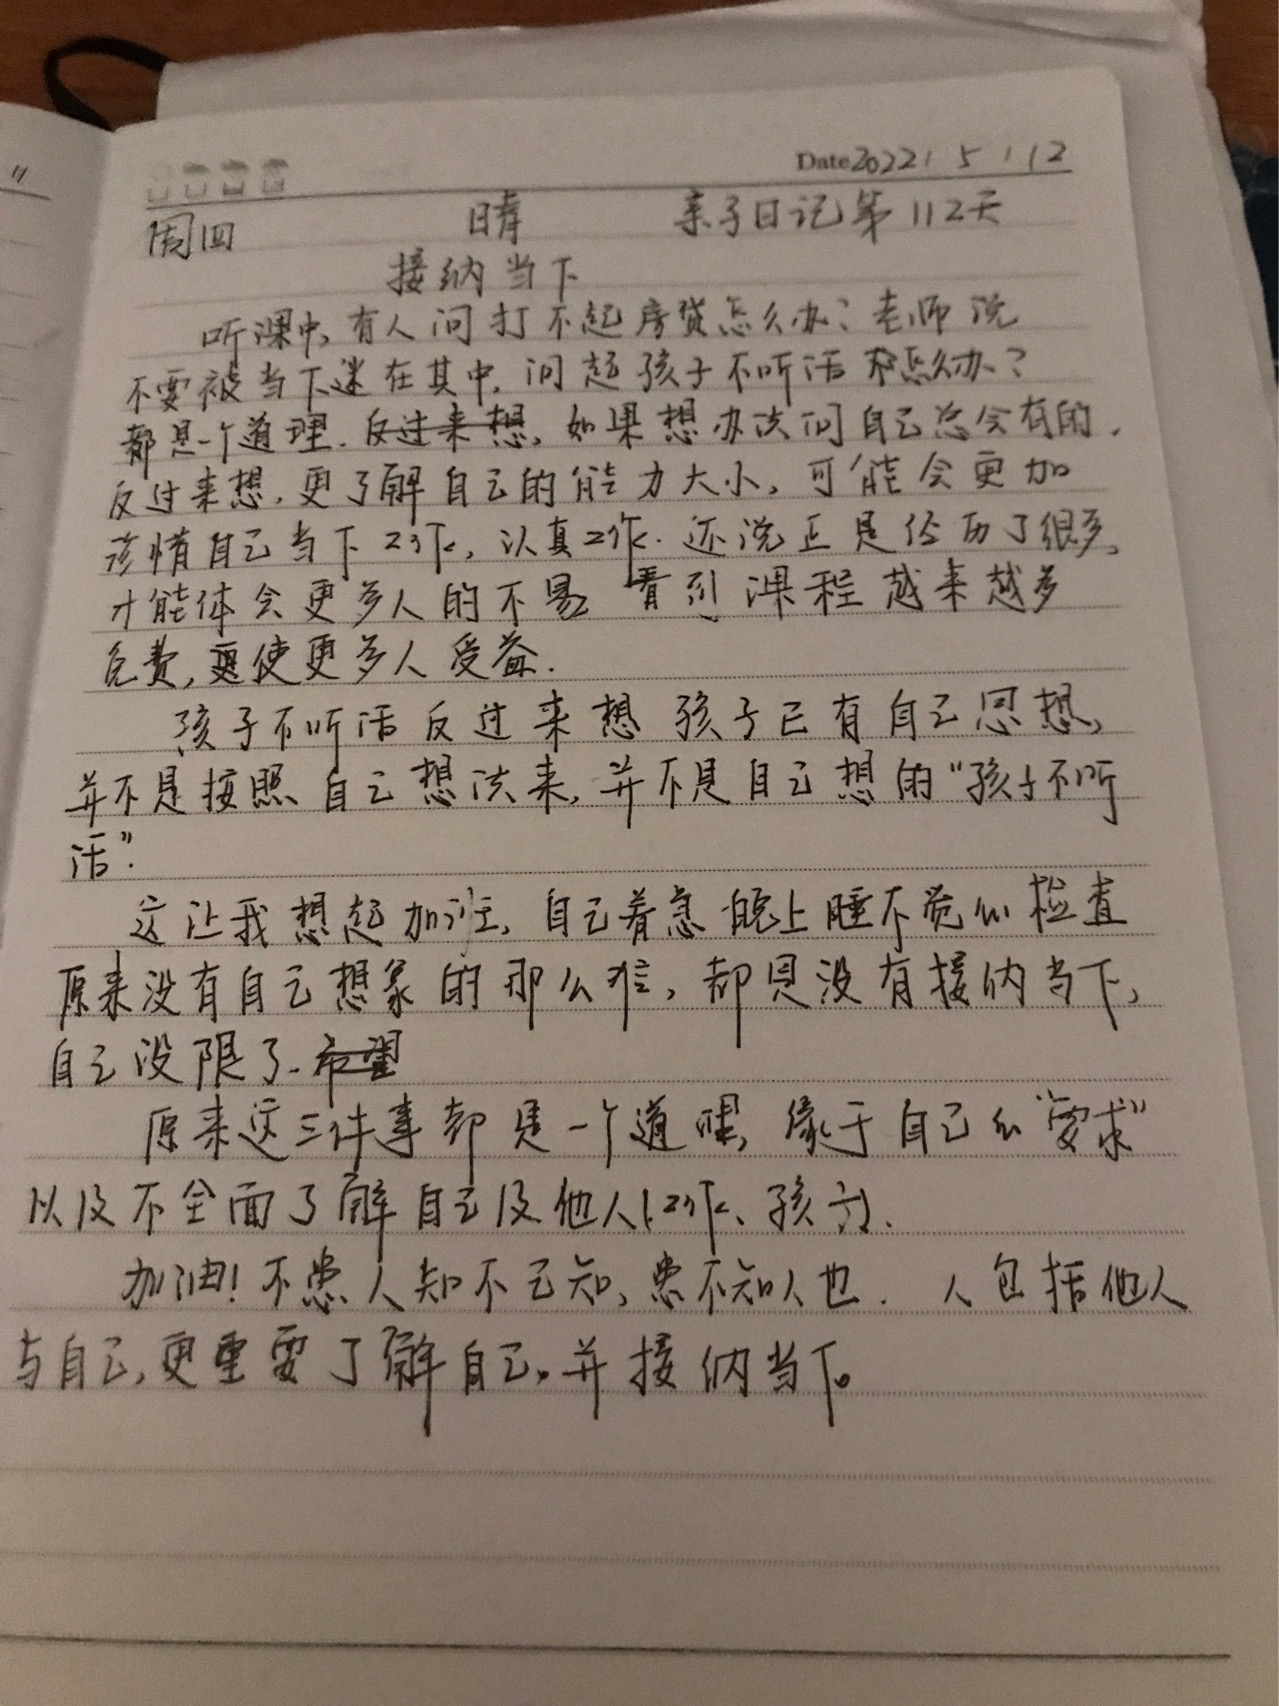 Date 2022 / 5 / 12
周四 晴 亲子日记第112天
接纳当下
听课中,有人问打不起房贷怎么办?老师说
不要被当下迷在其中,问起孩子不听话怎么办?
都是一个道理.反过来想,如果想办法问自己总会有的.
反过来想,更了解自己的能力大小,可能会更加
珍惜自己当下工作,认真工作.还说正是经历了很多,
才能体会更多人的不易 看到课程越来越多
免费,更使更多人受益.
孩子不听话反过来想 孩子已有自己思想,
并不是按照自己想法来,并不是自己想的“孩子不听
话”.
这让我想起加班,自己着急晚上睡不觉 检查
原来没有自己想象的那么难,都是没有接纳当下,
自己没限了.希望
原来这三件事都是一个道理,缘于自己的“要求”
以及不全面了解自己及他人(工作、孩子).
加油!不患人知不己知,患不知人也. 人包括他人
与自己,更重要了解自己,并接纳当下。